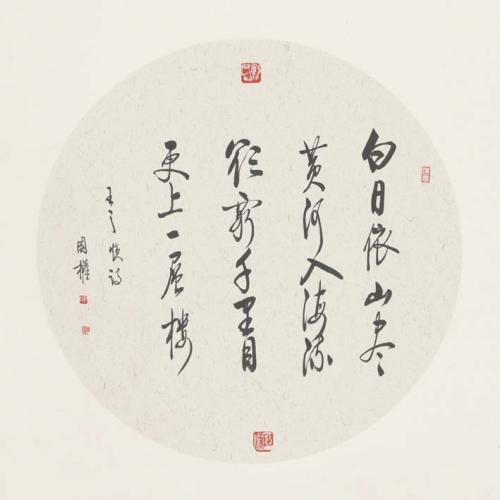 白日依山尽
黄河入海流
欲穷千里目
更上一层楼
王之涣诗
国权